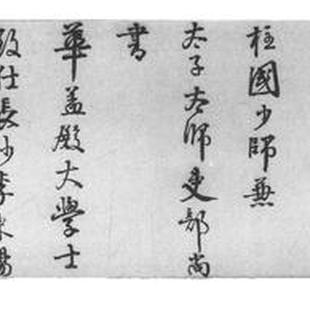 柱國少師兼
太子太師吏部尚
書
華蓋殿大學士
致仕長沙李東陽